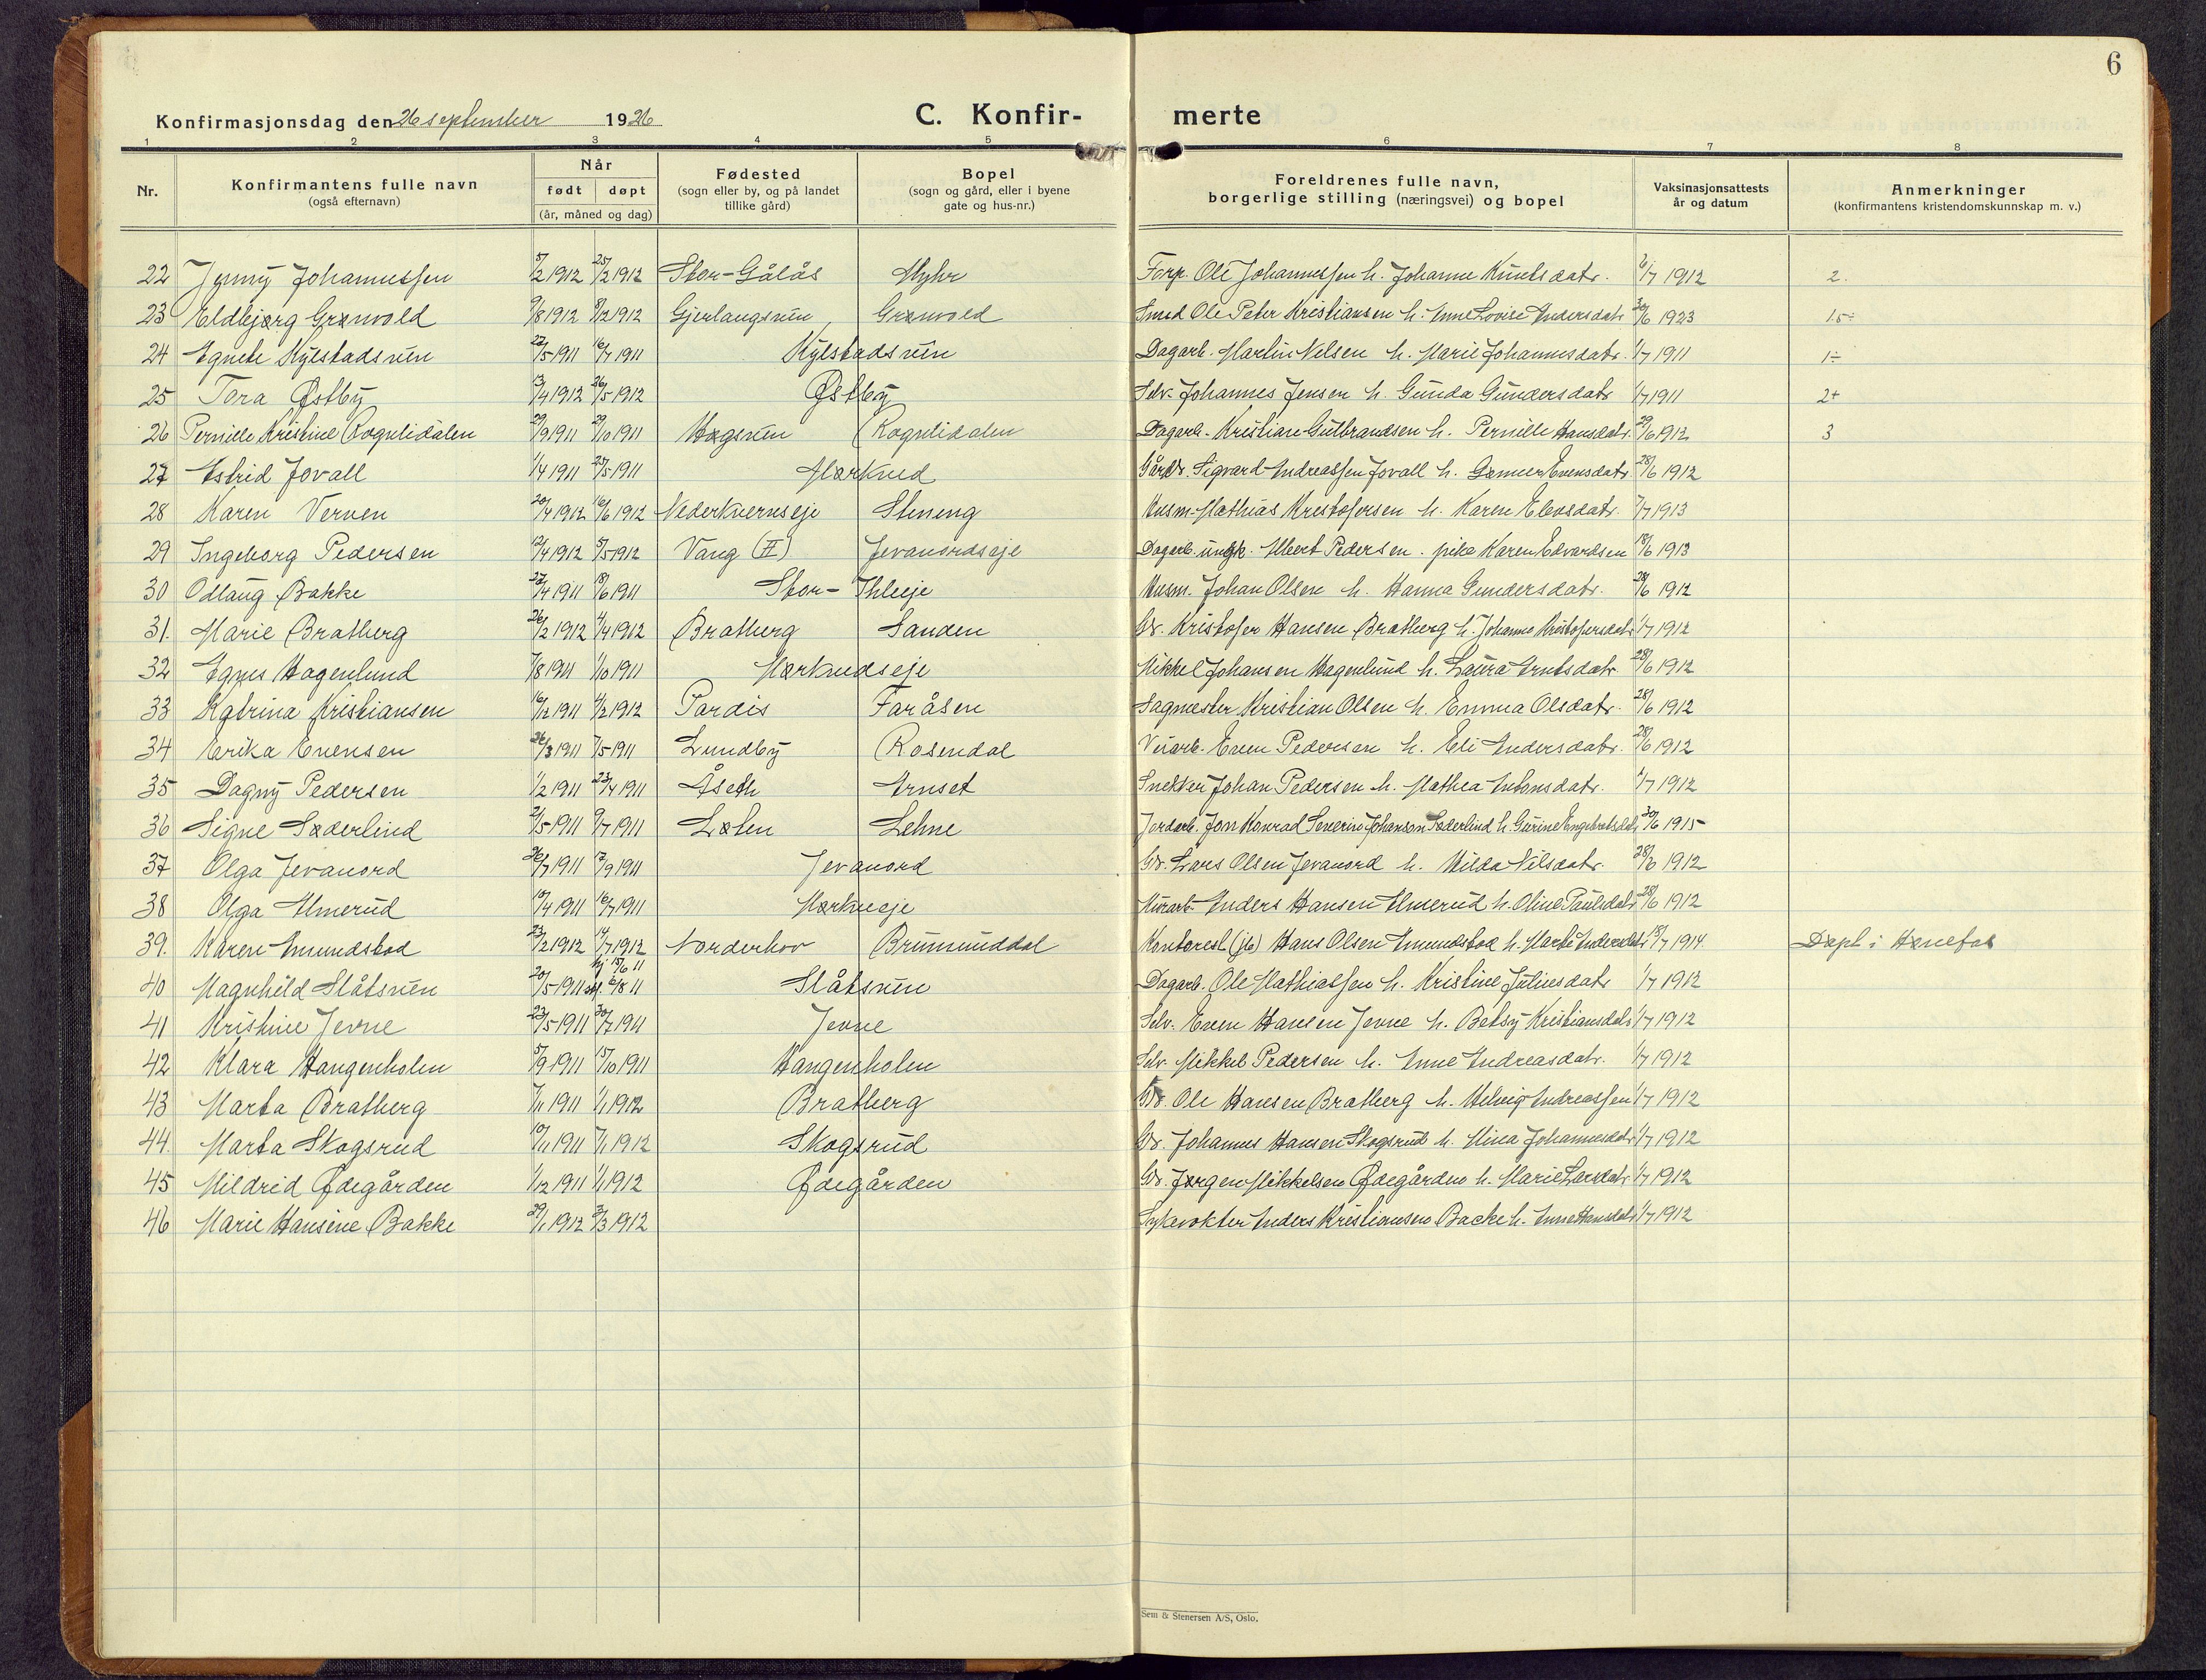 6
Konfirmasjonsdag den 26 september 1926 C. Konfir- merte
1 2 3 4 5 6 7 8
Nr. Konfirmantens fulle navn (også efternavn) Når født døpt (år, måned og dag) Fødested (sogn eller by, og på landet tillike gård) Bopel (sogn og gård, eller i byene gate og hus-nr.) Foreldrenes fulle navn, borgerlige stilling (næringsvei) og bopel Vaksinasjonsattests år og datum Anmerkninger (konfirmantens kristendomskunnskap m. v.)
22 Jenny Johannessen 5/2 1912 25/2 1912 Stor-Gålås Myhr Forp. Ole Johannessen h. Johanne Knutsdatr. 1912 2.
23 Eldbjørg Grønvold 9/8 1912 8/12 1912 Gjerlaugsrun Grønvold Smed Ole Peter Kristiansen h. Anne Lovise Andersdatr 30/6 1923 1.5÷
24 Agnete Kylstadsrun 22/5 1911 16/7 1911 Kylstadsrun Dagarb. Martin Nilsen h. Marie Johannesdatr. 1/7 1911 1÷
25 Tora Østby 13/4 1912 26/5 1912 Østby Selv. Johannes Jensen h. Gunda Gundersdatr 1/7 1911 2+
26 Pernille Kristine Rognlidalen 29/9 1911 29/10 1911 Høgsrun Rognlidalen Dagarb. Kristian Gulbrandsen h. Pernille Hansdatr. 29/6 1912 3
27 Astrid Jovall 1/4 1911 25/5 1911 Mørkved Gårdbr. Sigvard Andreassen Jovall h. Evensdatr. 28/6 1912
28 Karen Verven 20/4 1912 16/6 1912 Nederkvernseje Steneng Husm. Mathias Kristofersen h. Karen Elevsdatr. 7/7 1913
29 Ingeborg Pedersen 12/4 1912 5/5 1912 Vang (H) Jevanordseje Dagarb. ungk. Albert Pedersen. pike Karen Edvardsen 18/6 1913
30 Odlaug Bakke 27/4 1911 18/6 1911 Stor-Ihleeje Husm. Johan Olsen h. Hanna Gundersdatr. 28/6 1912
31. Marie Bratberg 26/2 1912 4/4 1912 Bratberg Sanden Gbr. Kristofer Hansen Bratberg h. Johanne Kristofersdatr 1/7 1912
32 Agnes Hagenlund 7/8 1911 1/10 1911 Mørkvedseje Mikkel Johansen Hagenlund h. Laura Arntsdatr 28/6 1912
33 Katrina Kristiansen 16/12 1911 4/2 1912 Pardis Faråsen Sagmester Kristian Olsen h. Emma Olsdatr. 28/6 1912
34 Erika Evensen 26/3 1911 7/5 1911 Lundby Rosendal Veiarb. Even Pedersen h. Eli Andersdatr. 28/6 1912
35 Dagny Pedersen 1/2 1911 23/4 1911 Åseth Arnset Snekker Johan Pedersen h. Mathea Antonsdatr. 1/7 1912
36 Signe Søderlind 21/5 1911 9/7 1911 Løten Lehne Jordarb. Jon Konrad Severin Johanson Søderlind h. Gurine Engebretsdatr 30/6 1915
37 Olga Jevanord 26/7 1911 17/9 1911 Jevanord Gbr. Lars Olsen Jevanord h. Hilda Nilsdatr. 28/6 1912
38 Olga Almerud 10/4 1911 16/7 1911 Mørkveeje Murarb. Anders Hansen Almerud h. Oline Paulsdatr 28/6 1912
39. Karen Amundstad 23/2 1912 14/7 1912 Norderhov Brumunddal Kontorest (jb) Hans Olsen Amundstad h. Marte Andersdatr 18/7 1914 Døpt i Hønefos
40 Magnhild Slåtsrun 20/5 1911 hj 15/6 11 6/8 11 Slåtsrun Dagarb. Ole Mathiassen h. Kristine Juliusdatr 1/7 1912
41 Kristine Jevne 23/5 1911 30/7 1911 Jevne Selv. Even Hansen Jevne h. Betsy Kristiansdatr 1/7 1912
42 Klara Haugenholen 5/9 1911 15/10 1911 Haugenholen Selv. Mikkel Pedersen h. Anne Andreasdatr. 1/7 1912
43 Marta Bratberg 7/11 1911 1/1 1912 Bratberg Gbr. Ole Hansen Bratberg h. Helvig Andreassen 1/7 1912
44. Marta Skogsrud 10/11 1911 7/1 1912 Skogsrud Gbr. Johannes Hansen Skogsrud h. Mina Johannesdatr 1/7 1912
45 Mildrid Ødegården 1/12 1911 1/1 1912 Ødegården Gbr. Jørgen Mikkelsen Ødegården h. Marie Larsdatr 1/7 1912
46 Marie Hansine Bakke 29/1 1912 3/3 1912 Sykevokter Anders Kristiansen Backe h. Anne Hansdatr 1/7 1912
Sem & Stenersen A/S, Oslo.